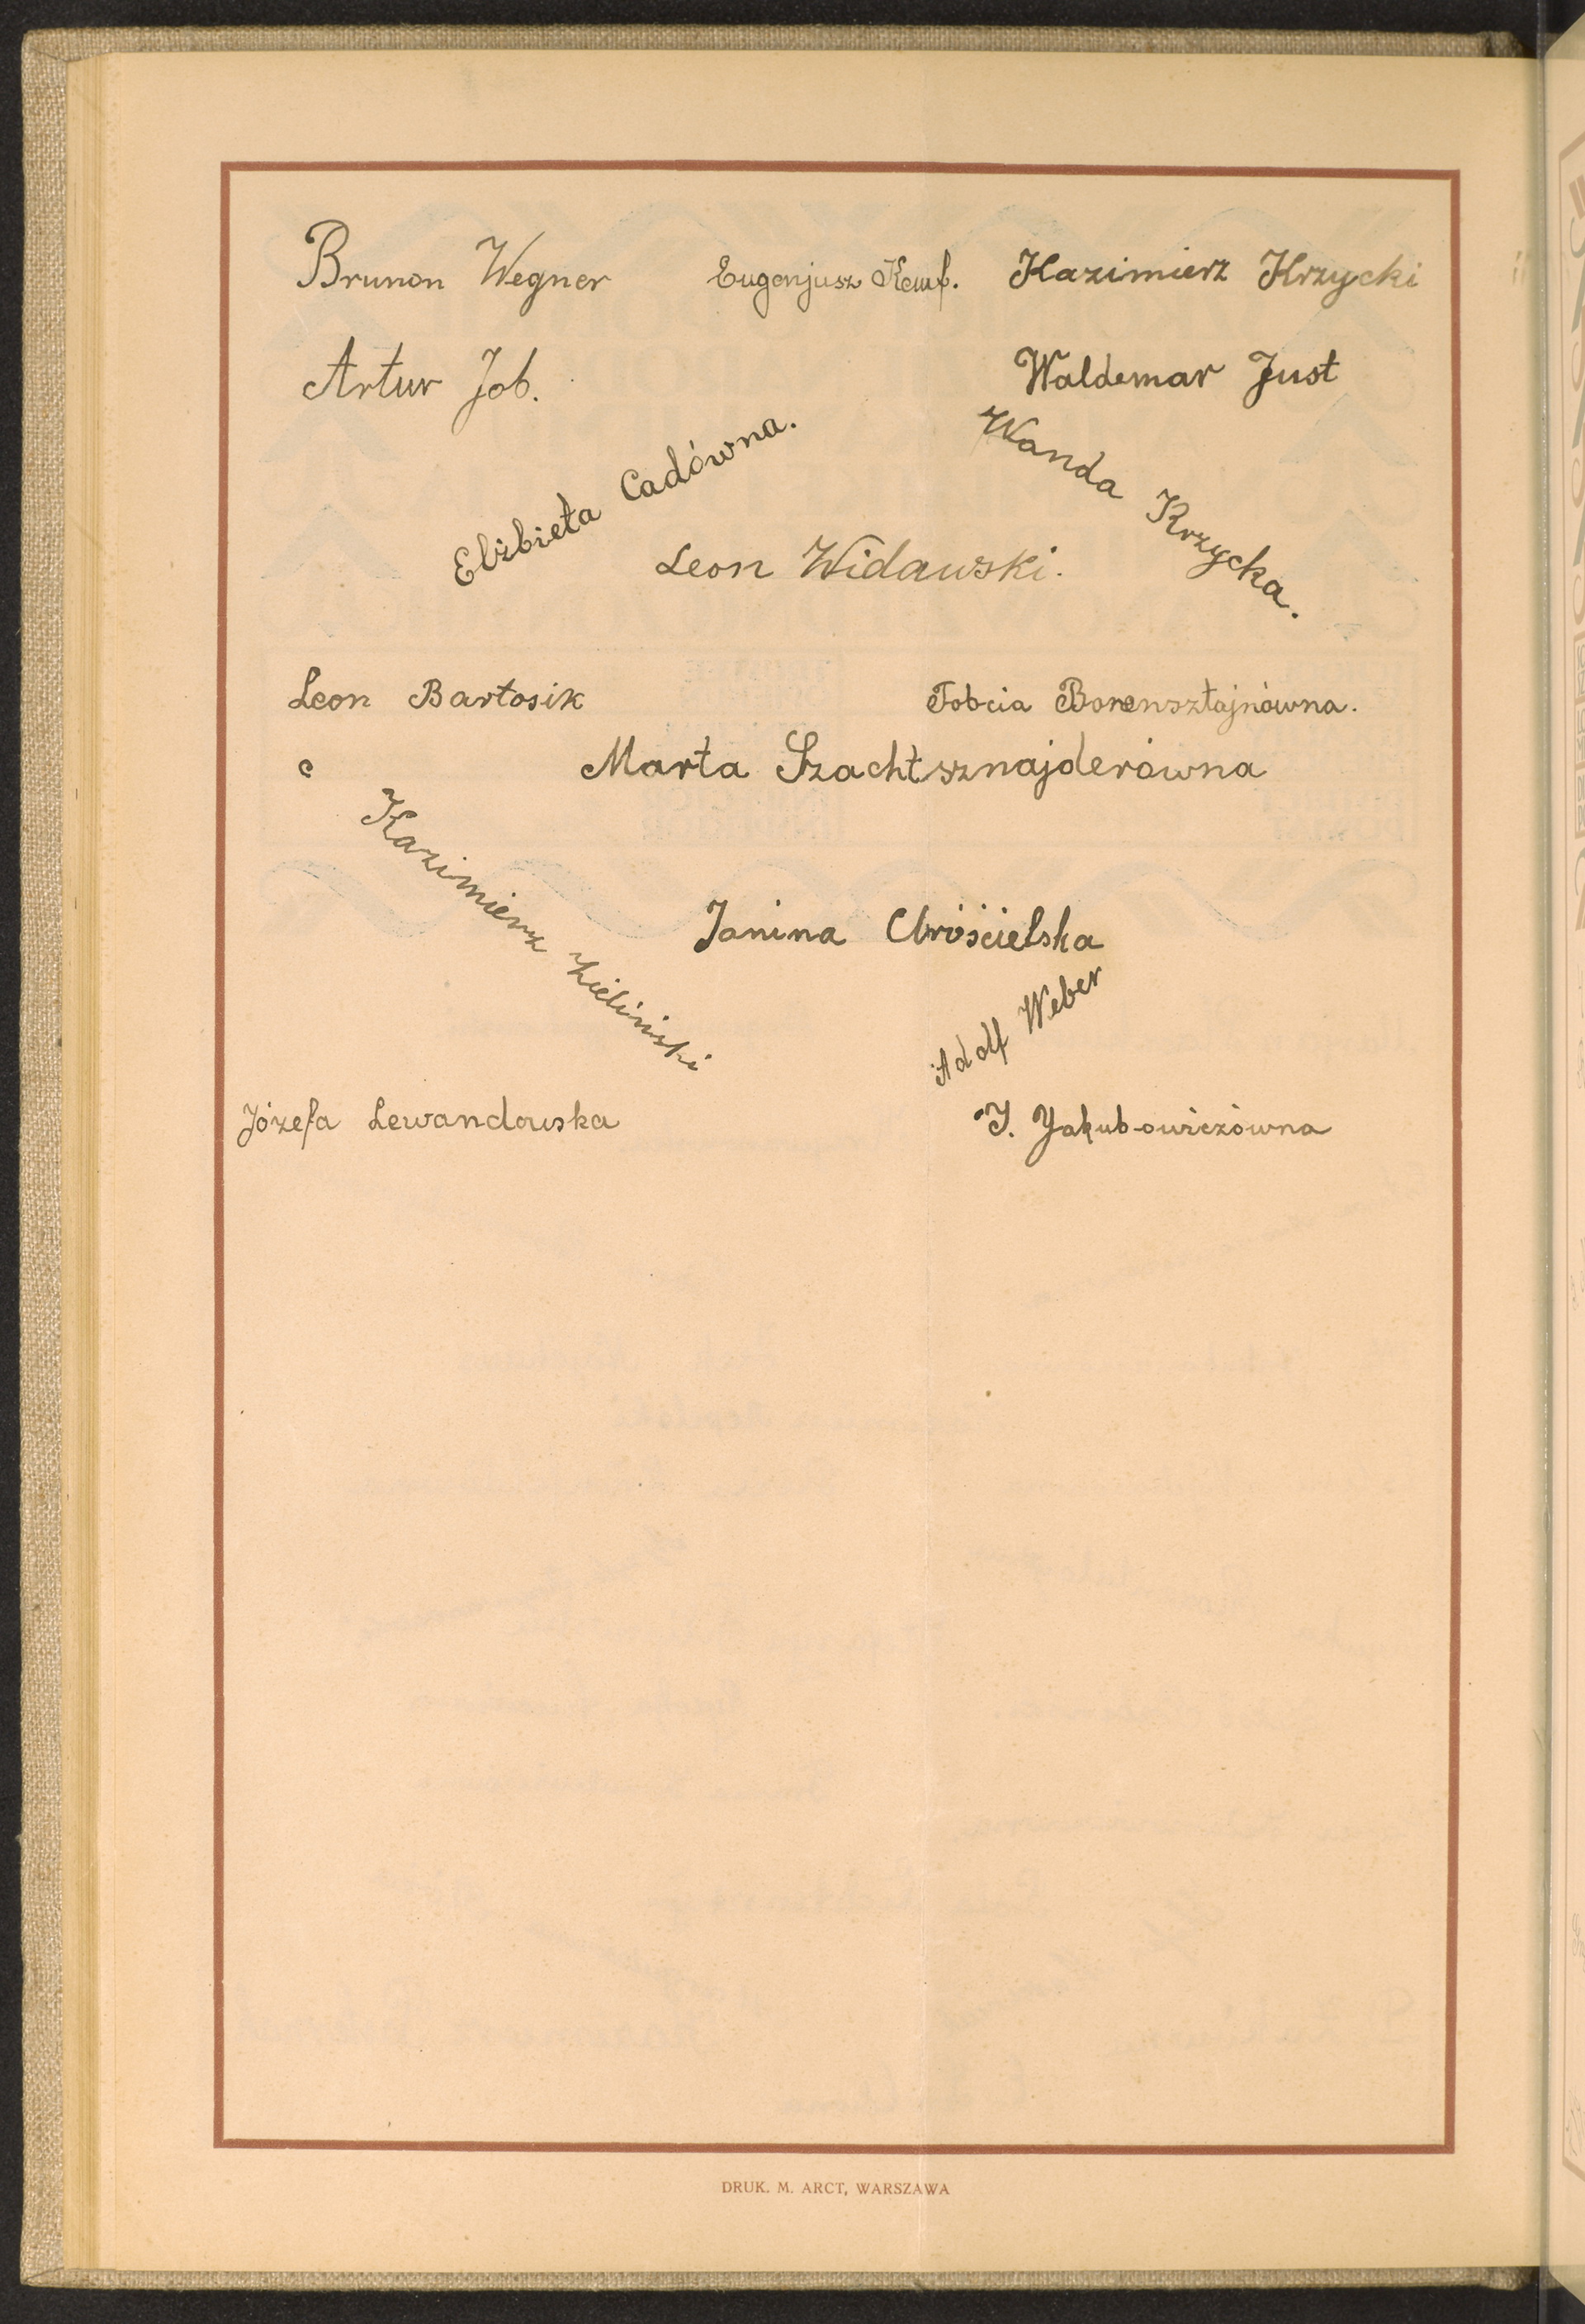 Brunon Wegner Eugenjusz Kempf. Kazimierz Krzycki
Artur Job. Waldemar Just
Elżbieta Cadówna.
Wanda Krzycka.
Leon Widawski.
Leon Bartosik Tobcia Borensztajnówna.
c Marta Szachtsznajderówna
Kazimierz Zieliński
Janina
Adolf Weber
Józefa Lewandowska J. Jakubowiczówna
DRUK. M. ARCT, WARSZAWA